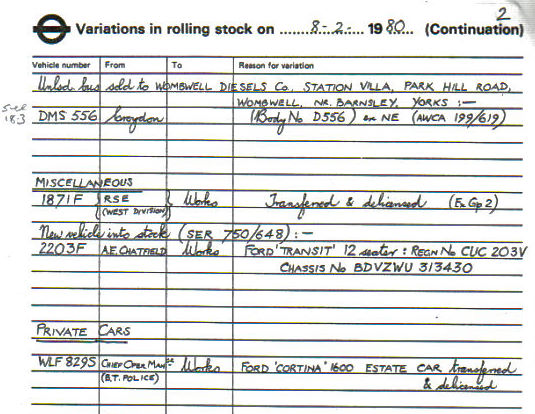 2
Variations in rolling stock on ........8-2-.... 1980.. (Continuation)
Vehicle number From To Reason for variation
Unlsd bus sold to WOMBWELL DIESELS Co., STATION VILLA, PARK HILL ROAD,
WOMBWELL, NR. BARNSLEY, YORKS :—
see
18.3
DMS 556 Croydon (Body No D556) ex NE (AWCA 199/619)
MISCELLANEOUS
1871F RSE (WEST DIVISION) Works Transferred & delicensed (Ex Gp 2)
New vehicle into stock (SER 750/648) :—
2203F A.E. CHATFIELD Works FORD 'TRANSIT' 12 seater : REGN No CUC 203V
CHASSIS No BDVZWU 313430
PRIVATE CARS
WLF 829S CHIEF OPER MANGR Works FORD 'CORTINA' 1600 ESTATE CAR transferred
(B.T. POLICE) & delicensed